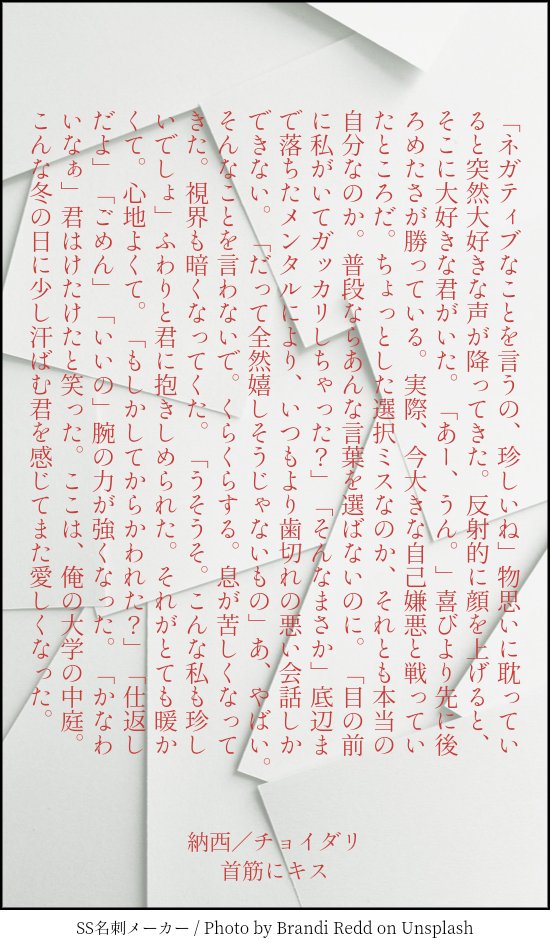 「ネガティブなことを言うの、珍しいね」物思いに耽ってい
ると突然大好きな声が降ってきた。反射的に顔を上げると、
そこに大好きな君がいた。「あー、うん。」喜びより先に後
ろめたさが勝っている。実際、今大きな自己嫌悪と戦ってい
たところだ。ちょっとした選択ミスなのか、それとも本当の
自分なのか。普段ならあんな言葉を選ばないのに。「目の前
に私がいてガッカリしちゃった？」「そんなまさか」底辺ま
で落ちたメンタルにより、いつもより歯切れの悪い会話しか
できない。「だって全然嬉しそうじゃないもの」あ、やばい。
そんなことを言わないで。くらくらする。息が苦しくなって
きた。視界も暗くなってくた。「うそうそ。こんな私も珍し
いでしょ」ふわりと君に抱きしめられた。それがとても暖か
くて。心地よくて。「もしかしてからかわれた？」「仕返し
だよ」「ごめん」「いいの」腕の力が強くなった。「かなわ
いなぁ」君はけたけたと笑った。ここは、俺の大学の中庭。
こんな冬の日に少し汗ばむ君を感じてまた愛しくなった。
納西／チョイダリ
首筋にキス
SS名刺メーカー / Photo by Brandi Redd on Unsplash